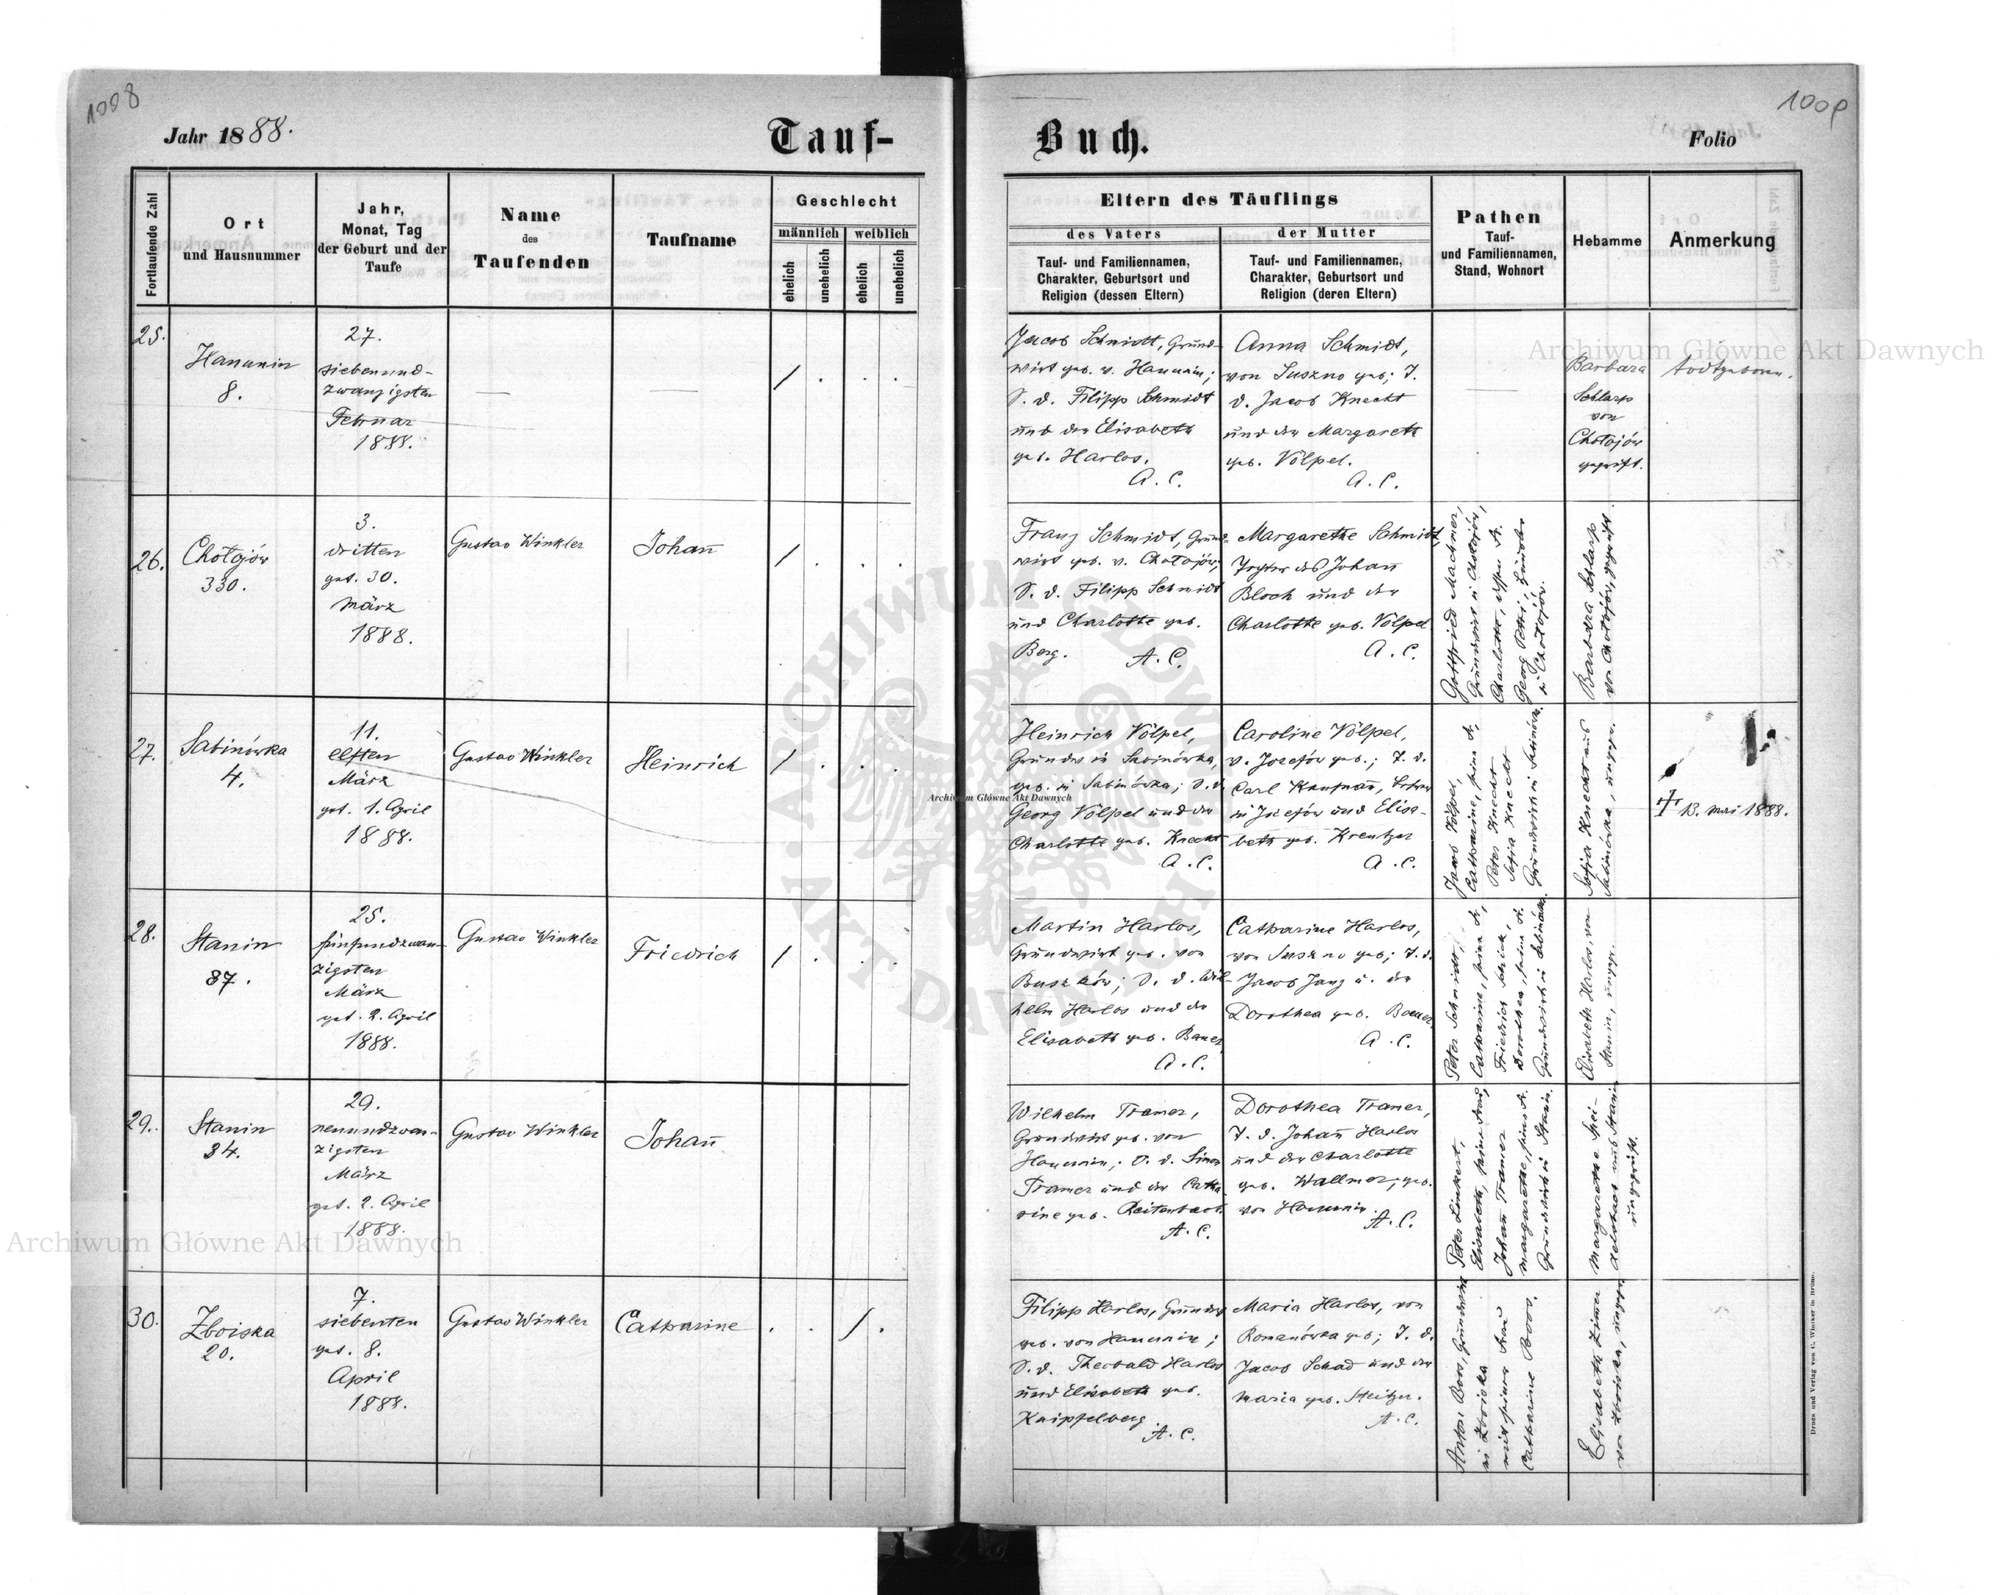 1008
Jahr 1888.
Tauf-
Fortlaufende Zahl
Ort
und Hausnummer
Jahr,
Monat, Tag
der Geburt und der
Taufe
Name
des
Taufenden
Taufname
Geschlecht
männlich
weiblich
ehelich
unehelich
ehelich
unehelich
25.
Hanunin
8.
27.
siebenund-
zwanzigsten
Februar
1888.
—
—
/ . . .
26.
Chołojów
330.
3.
dritten
get. 30.
März
1888.
Gustav Winkler
Johan̄
/ . . .
27.
Sabinówka
4.
11.
elften
März
get. 1. April
1888.
Gustav Winkler
Heinrich
/ . . .
28.
Stanin
87.
25.
fünfundzwan-
zigsten
März
get. 2. April
1888.
Gustav Winkler
Friedrich
/ . . .
29.
Stanin
34.
29.
neunundzwan-
zigsten
März
get. 2. April
1888.
Gustav Winkler
Johan̄
30.
Zboiska
20.
7.
siebenten
get. 8.
April
1888.
Gustav Winkler
Catharine
. . / .
1009
Buch.
Folio
Eltern des Täuflings
des Vaters
der Mutter
Tauf- und Familiennamen,
Charakter, Geburtsort und
Religion (dessen Eltern)
Tauf- und Familiennamen,
Charakter, Geburtsort und
Religion (deren Eltern)
Pathen
Tauf-
und Familiennamen,
Stand, Wohnort
Hebamme
Anmerkung
Jacob Schmidt, Grund-
wirt geb. v. Hanunin;
S. d. Filipp Schmidt
und der Elisabeth
geb. Harlos.
A. C.
Anna Schmidt,
von Suszno geb; T.
d. Jacob Knecht
und der Margareth
geb. Völpel.
A. C.
—
Barbara
Schlarp
von
Chołojów
geprüft.
todtgeboren.
Franz Schmidt, Grund-
wirt geb. v. Chołojów;
S. d. Filipp Schmidt
und Charlotte geb.
Berg.
A. C.
Margarethe Schmidt,
Tochter des Johan̄
Bloch und der
Charlotte geb. Völpel.
A. C.
Gottfried Machner,
Grundwirt in Chołojów,
Georg Petri,
in Chołojów.
Barbara Schlarp
von Chołojów, geprüft.
Heinrich Völpel,
Grundw in Sabinówka,
geb. in Sabinówka; S. d.
Georg Völpel und der
Charlotte geb. Knecht
A. C.
Caroline Völpel,
v. Józefów geb.; T. d.
Carl Kaufman̄,
in Józefów und Elisa-
beth geb. Kreutzer
A. C.
Jacob Völpel,
Catharine, seine Fr.
Peter Knecht
Sofia Knecht
Grundwirth in Sabinówka.
Sofia Knecht aus
Sabinówka, ungepr.
† 13. Mai 1888.
Martin Harlos,
Grundwirt geb. von
Buszków; S. d. Wil-
helm Harlos und der
Elisabeth geb. Bauer
A. C.
Catharine Harlos,
von Suszno geb; T. d.
Jacob Janz u. der
Dorothea geb. Bauer.
A. C.
Peter Schmidt,
Catharine, seine Fr,
Dorothea, seine Fr.
Grundwirth in Sabinówka.
Elisabeth Harlos, von
Stanin, ungepr.
Wilhelm Tramer,
Grundwirt geb. von
Hanunin; S. d. Simon
Tramer und der Catha-
rine geb. Reitenbach.
A. C.
Dorothea Tramer,
T. d. Johan̄ Harlos
und der Charlotte
geb. Wallmer, geb.
von Hanunin.
A. C.
Peter Linkert,
Elisabeth, seine Frau,
Johan̄ Tramer
Margarethe, seine Fr.
Grundwirth in Stanin.
Margarethe Spei-
delbach aus Stanin
ungeprüft.
Filipp Harlos, Grundw
geb. von Hanunin;
S. d. Theobald Harlos
und Elisabeth geb.
Knipfelberg.
A. C.
Maria Harlos, von
Romanówka geb; T. d.
Jacob Schad und der
Maria geb. Steitzer.
A. C.
Anton Boos, Grundwirt
in Zboiska
mit seiner Frau
Catharine Boos.
Elisabeth Zimer
von Zboiska, ungepr.
Druck und Verlag von C. Winiker in Brünn.
Archiwum Główne Akt Dawnych
Archiwum Główne Akt Dawnych
Archiwum Główne Akt Dawnych
ARCHIWUM GŁÓWNE AKT DAWNYCH